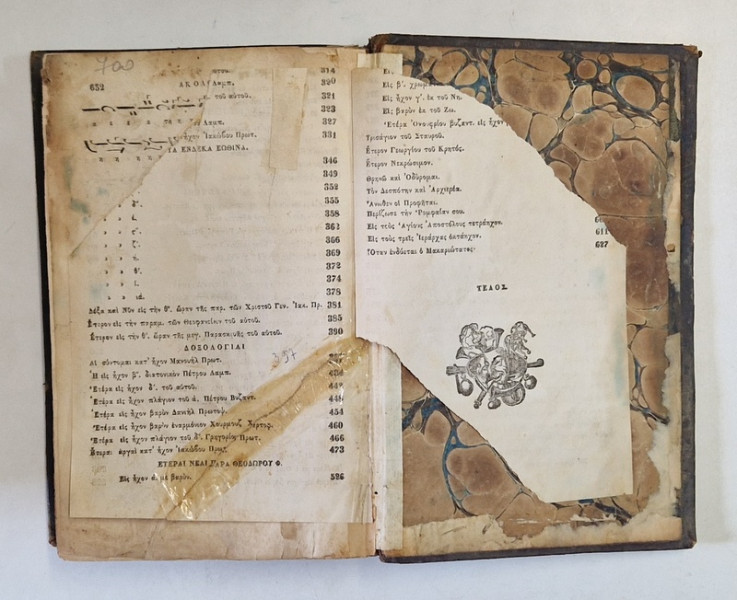 700
314
652 Λαμπ. 320
τοῦ αὐτοῦ. 321
323
Λαμπ. 327
ἦχον Ἰακώβου Πρωτ. 331
ΤΑ ΕΝΔΕΚΑ ΕΩΘΙΝΑ.
346
349
352
» » δ'. 355
» » έ. 358
» » ς'. 362
» » ζ'. 366
» » ή. 369
» » θ'. 372
» » ί. 374
» » 378
» » ιά.
Δόξα καὶ Νῦν εἰς τὴν θ'. ὥραν τῆς παρ. τῶν Χριστοῦ Γεν. Ἰακ. Πρ. 381
Ἕτερον εἰς τὴν παραμ. τῶν Θεοφανείων τοῦ αὐτοῦ. 385
Ἕτερον εἰς τὴν θ'. ὥραν τῆς μεγ. Παρασκευῆς τοῦ αὐτοῦ. 390
ΔΟΞΟΛΟΓΙΑΙ
397
Αἱ σύντομαι κατ' ἦχον Μανουὴλ Πρωτ.
Ἡ εἰς ἦχον β'. διατονικὸν Πέτρου Λαμπ. 436
Ἑτέρα εἰς ἦχον δ'. τοῦ αὐτοῦ.
Ἑτέρα εἰς ἦχον πλάγιον τοῦ ά. Πέτρου Βυζαντ. 448
Ἑτέρα εἰς ἦχον βαρὺν Δανιὴλ Πρωτοψ. 454
Ἑτέρα εἰς ἦχον βαρὺν ἐναρμόνιον Χουρμουζ. Χαρτοφ. 460
Ἑτέρα εἰς ἦχον πλάγιον τοῦ δ'. Γρηγορίου Πρωτ. 466
Ἕτεραι ἀργαὶ κατ' ἦχον Ἰακώβου Πρωτ. 473
ΕΤΕΡΑΙ ΝΕΑΙ ΠΑΡΑ ΘΕΟΔΩΡΟΥ Φ.
Εἰς ἦχον ά. μὲ βαρὺν. 526
Εἰς
Εἰς β'. χρωμ
Εἰς ἦχον γ'. ἐκ τοῦ Νη.
Εἰς βαρὺν ἐκ τοῦ Ζω.
Ἑτέρα Ὀνουφρίου βυζαντ. εἰς ἦχον
Τρισάγιον τοῦ Σταυροῦ.
Ἕτερον Γεωργίου τοῦ Κρητός.
Ἕτερον Νεκρώσιμον.
Θρηνῶ καὶ Ὀδύρομαι.
Τὸν Δεσπότην καὶ Ἀρχιερέα.
Ἄνωθεν οἱ Προφῆται.
Περίζωσε τὴν Ῥομφαίαν σου.
Εἰς τοὺς Ἁγίους Ἀποστόλους τετράηχον. 611
Εἰς τοὺς τρεῖς Ἱεράρχας ὀκτάηχον. 627
Ὅταν ἐνδύεται ὁ Μακαριώτατος
ΤΕΛΟΣ